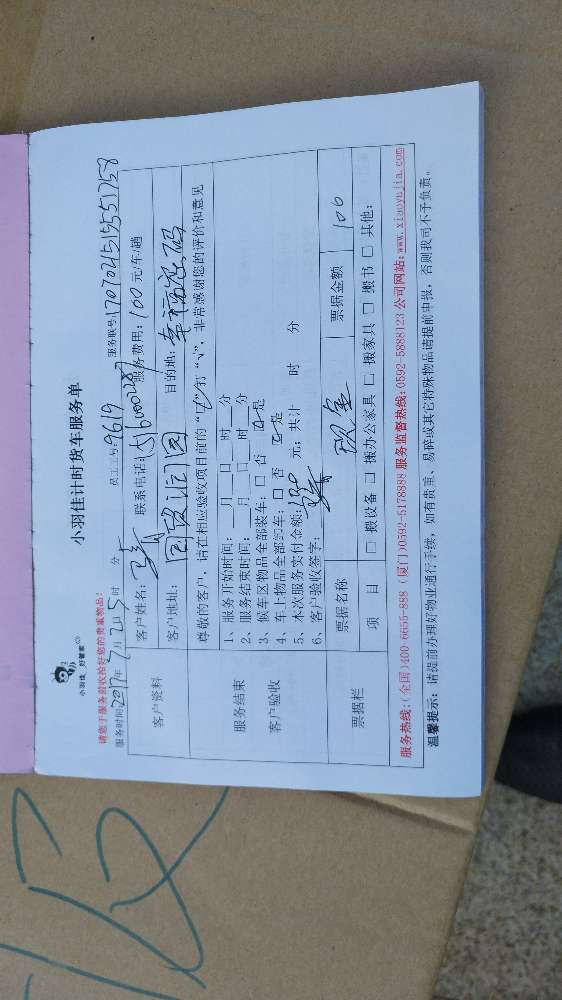 小羽佳计时货车服务单
小羽佳 好管家
请您于服务前收拾好您的贵重物品!
服务时间: 2017年7月2日5时 分 员工工号: 9619 服务联号: 1707041515551758
客户资料
客户姓名: 联系电话: 服务费用: 100元/车/趟
客户地址: 目的地: 幸福
尊敬的客户, 请在相应验收项目前的“口”, 打“√”, 非常感谢您的评价和意见
服务结束
客户验收
1、服务开始时间: 月 日 时 分
2、服务结束时间: 月 日 时 分
3、候车区物品全部装车: □ 否 ☑ 是
4、车上物品全部卸车: □ 否 ☑ 是
5、本次服务实付金额: 100 元; 共计 时 分
6、客户验收签字:
票据栏
票据名称 现金 票据金额 100
项 目 □ 搬设备 □ 搬办公家具 □ 搬家具 □ 搬书 □ 其他:
服务热线: (全国)400-6655-888 (厦门)0592-5178888 服务监督热线: 0592-5888123 公司网站: www.xiaoyujia.com
温馨提示: 请提前办理好物业通行手续, 如有贵重、易碎或其它特殊物品请提前申报, 否则我司不予负责。